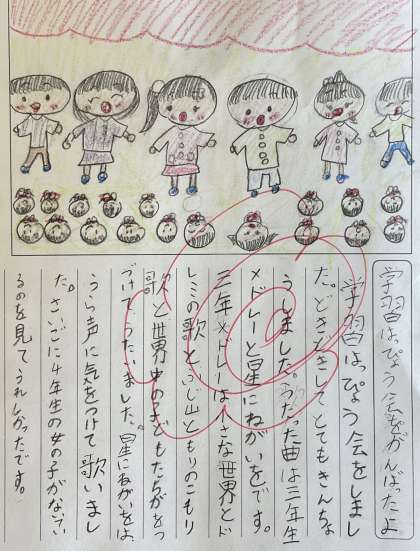 学習はっぴょう会をがんばったよ
学習はっぴょう会をしまし
た。どきどきしてとてもきんちょ
うしました。うたった曲は三年生
メドレーと星にねがいをです。
三年メドレーは小さな世界とド
レミの歌とふじ山ともりのこもり
歌と世界中の子どもたちがをつ
づけてうたいました。星にねがいをは、
うら声に気をつけて歌いまし
た。さいごに4年生の女の子がないてい
るのを見てうれしかったです。